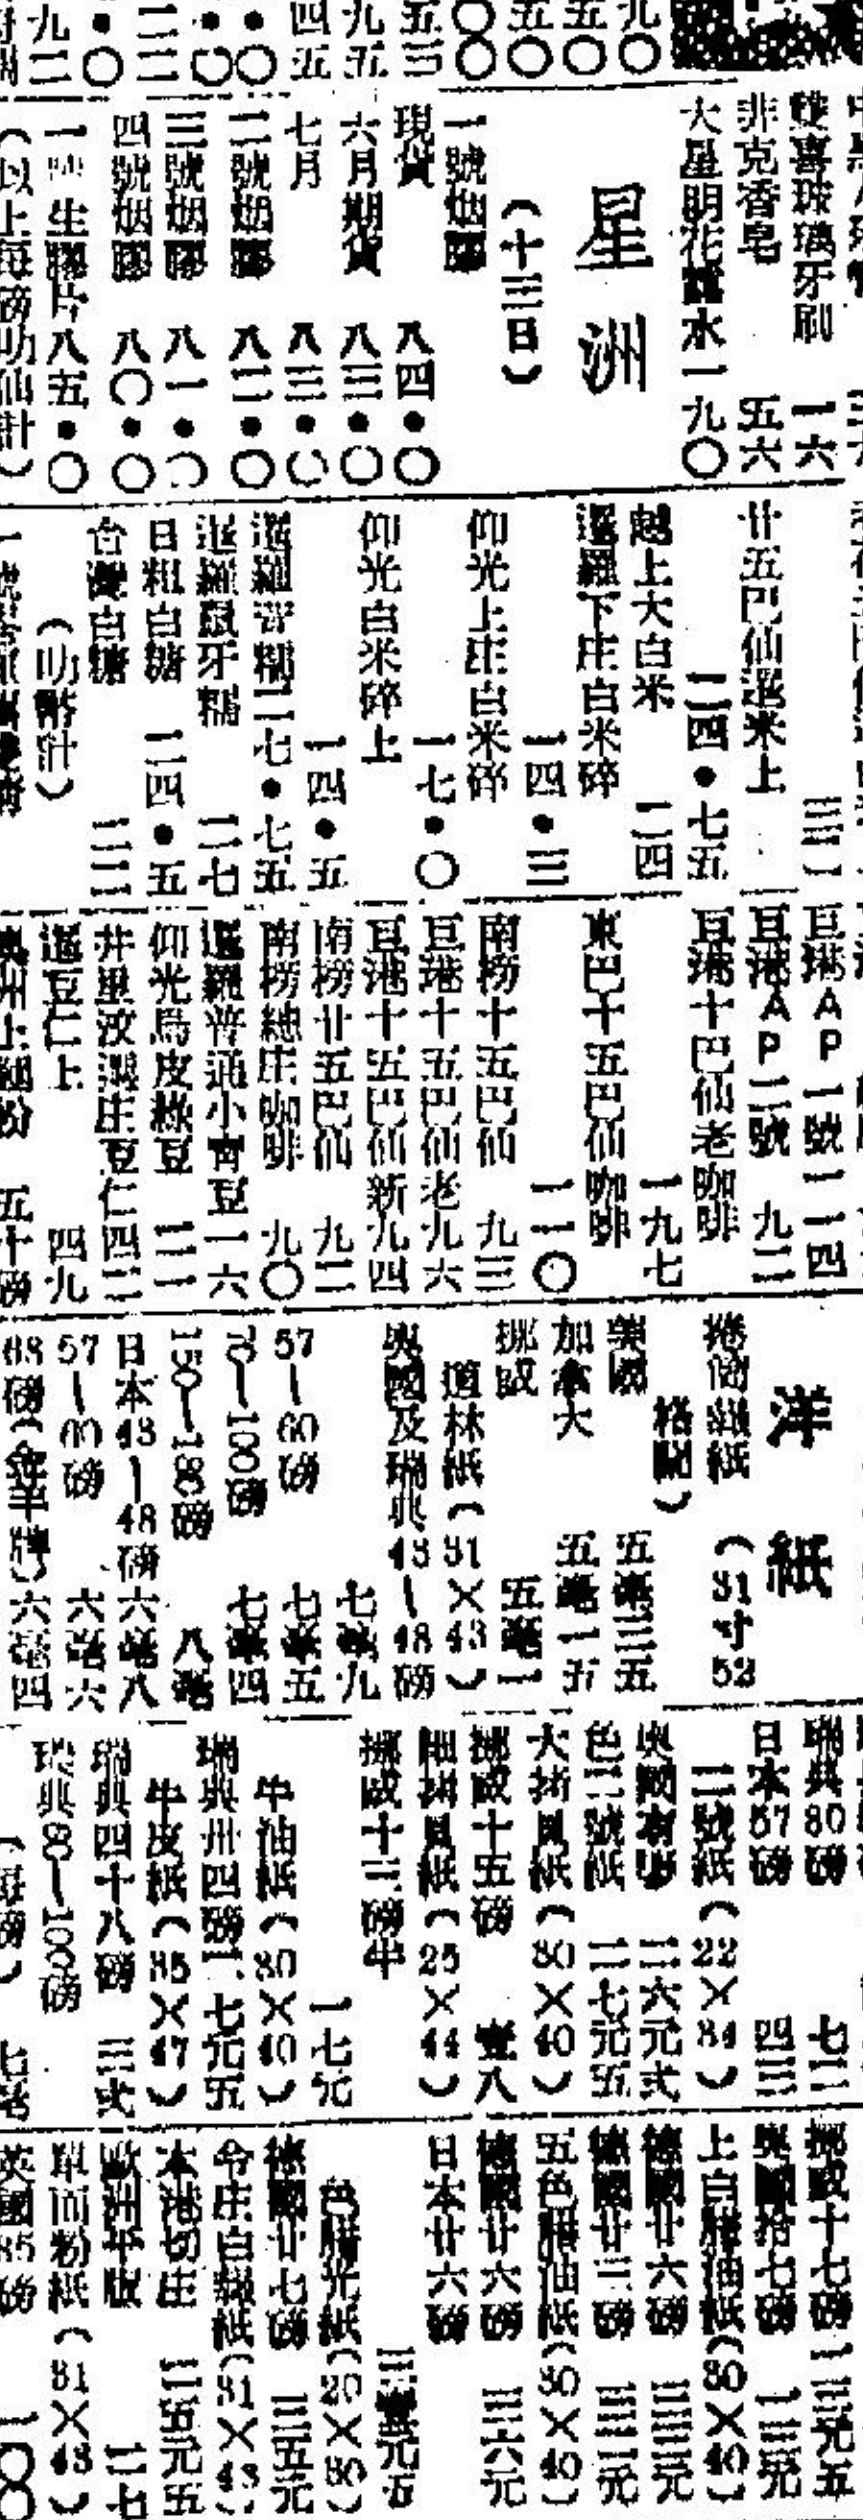 九〇
五〇
五〇
〇〇
五三
九五
四五
•〇
•〇
二二
•〇
九二
雙喜玻璃牙刷 一六
非克香皂 五六
大星明花露水一九〇
星洲
(十三日)
一號烟膠
現貨 八四•〇
六月期貨 八三•〇
七月 八三•〇
二號烟膠 八二•〇
三號烟膠 八一•〇
四號烟膠 八〇•〇
一號生膠片八五•〇
(以上每磅叻仙計)
三一
廿五巴仙暹米上
二四•七五
越上大白米 二四
暹羅下庄白米碎
一四•三
仰光上庄白米碎
一七•〇
仰光白米碎上
一四•五
暹羅普糯二七•七五
暹羅鼠牙糯 二七
日粗白糖 二四•五
台灣白糖 二二
(叻幣計)
巨港AP一號一一四
巨港AP二號 九二
巨港十巴仙老咖啡
一九七
東巴十五巴仙咖啡
一一〇
南榜十五巴仙 九三
巨港十五巴仙老九六
巨港十五巴仙新九四
南榜廿五巴仙 九二
南榜總庄咖啡 九〇
暹羅普通小青豆一六
仰光烏皮綠豆 二一
井里汶湛庄豆仁四二
暹豆仁上 四九
澳州上麵粉 五十磅
洋紙
捲筒報紙 (31寸52
格關)
美國 五毫三五
加拿大 五毫一五
挪威 五毫一
道林紙(31×43)
奥國及瑞典43—48磅
七毫九
57—60磅 七毫五
70—100磅 七毫四
150—180磅 八毫
日本43—48磅六毫八
57—60磅 六毫六
68磅(金羊牌)六毫四
瑞典80磅 七二
日本57磅 四三
二號紙(22×34)
奥國有彩 二六元弍
色二號紙 二七元五
大拷貝紙(30×40)
挪威十五磅 壹八
細拷貝紙(25×44)
挪威十三磅半
一七元
牛油紙(30×40)
瑞典卅四磅一七元五
牛皮紙(35×47)
瑞典四十八磅 三弍
瑞典80—100磅
(每磅) 七毫
挪威十七磅一三元五
奥國拾七磅 一三元
上白腊油紙(30×40)
德國廿六磅 三三元
德國廿三磅 三三元
五色腊油紙(30×40)
德國廿六磅 三六元
日本廿六磅
三壹元五
色腊光紙(20×30)
德國廿七磅 三五元
令庄白報紙(31×43)
本港切庄 二五元五
歐洲平版 二七
單面粉紙(31×43)
英國85磅 一〇〇